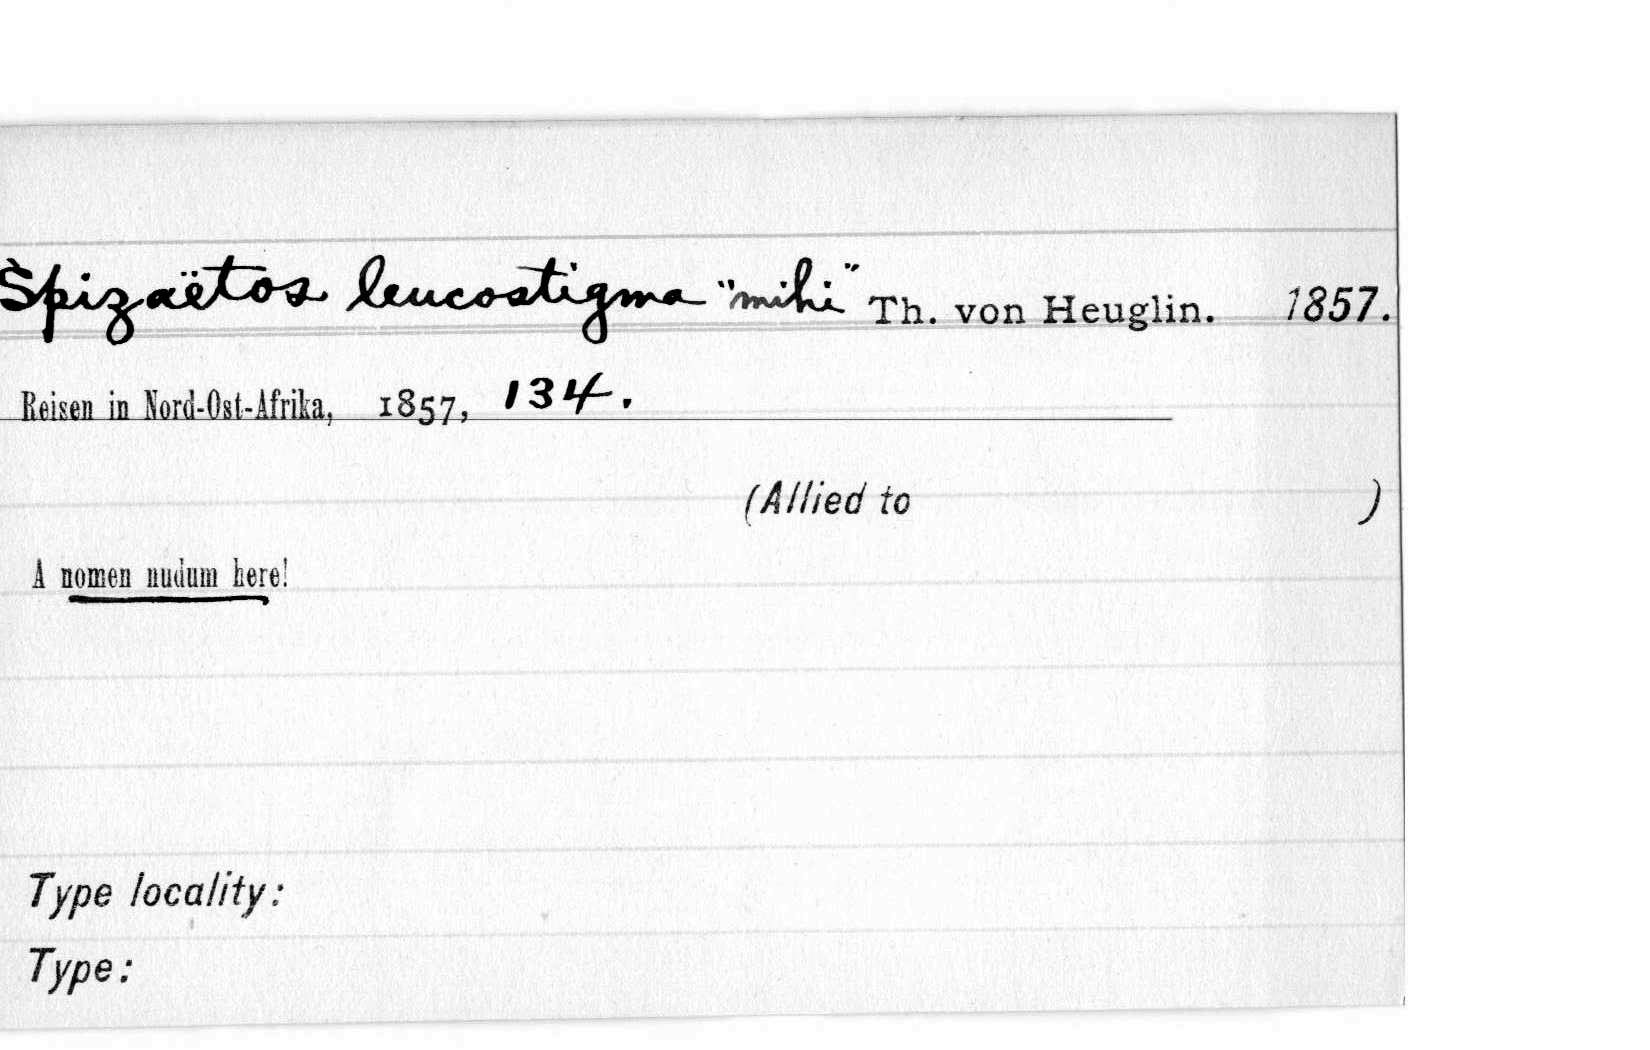 Spizaëtos leucostigma "mihi" Th. von Heuglin. 1857.
Reisen in Nord-Ost-Afrika, 1857, 134.
(Allied to )
A nomen nudum here!
Type locality:
Type: